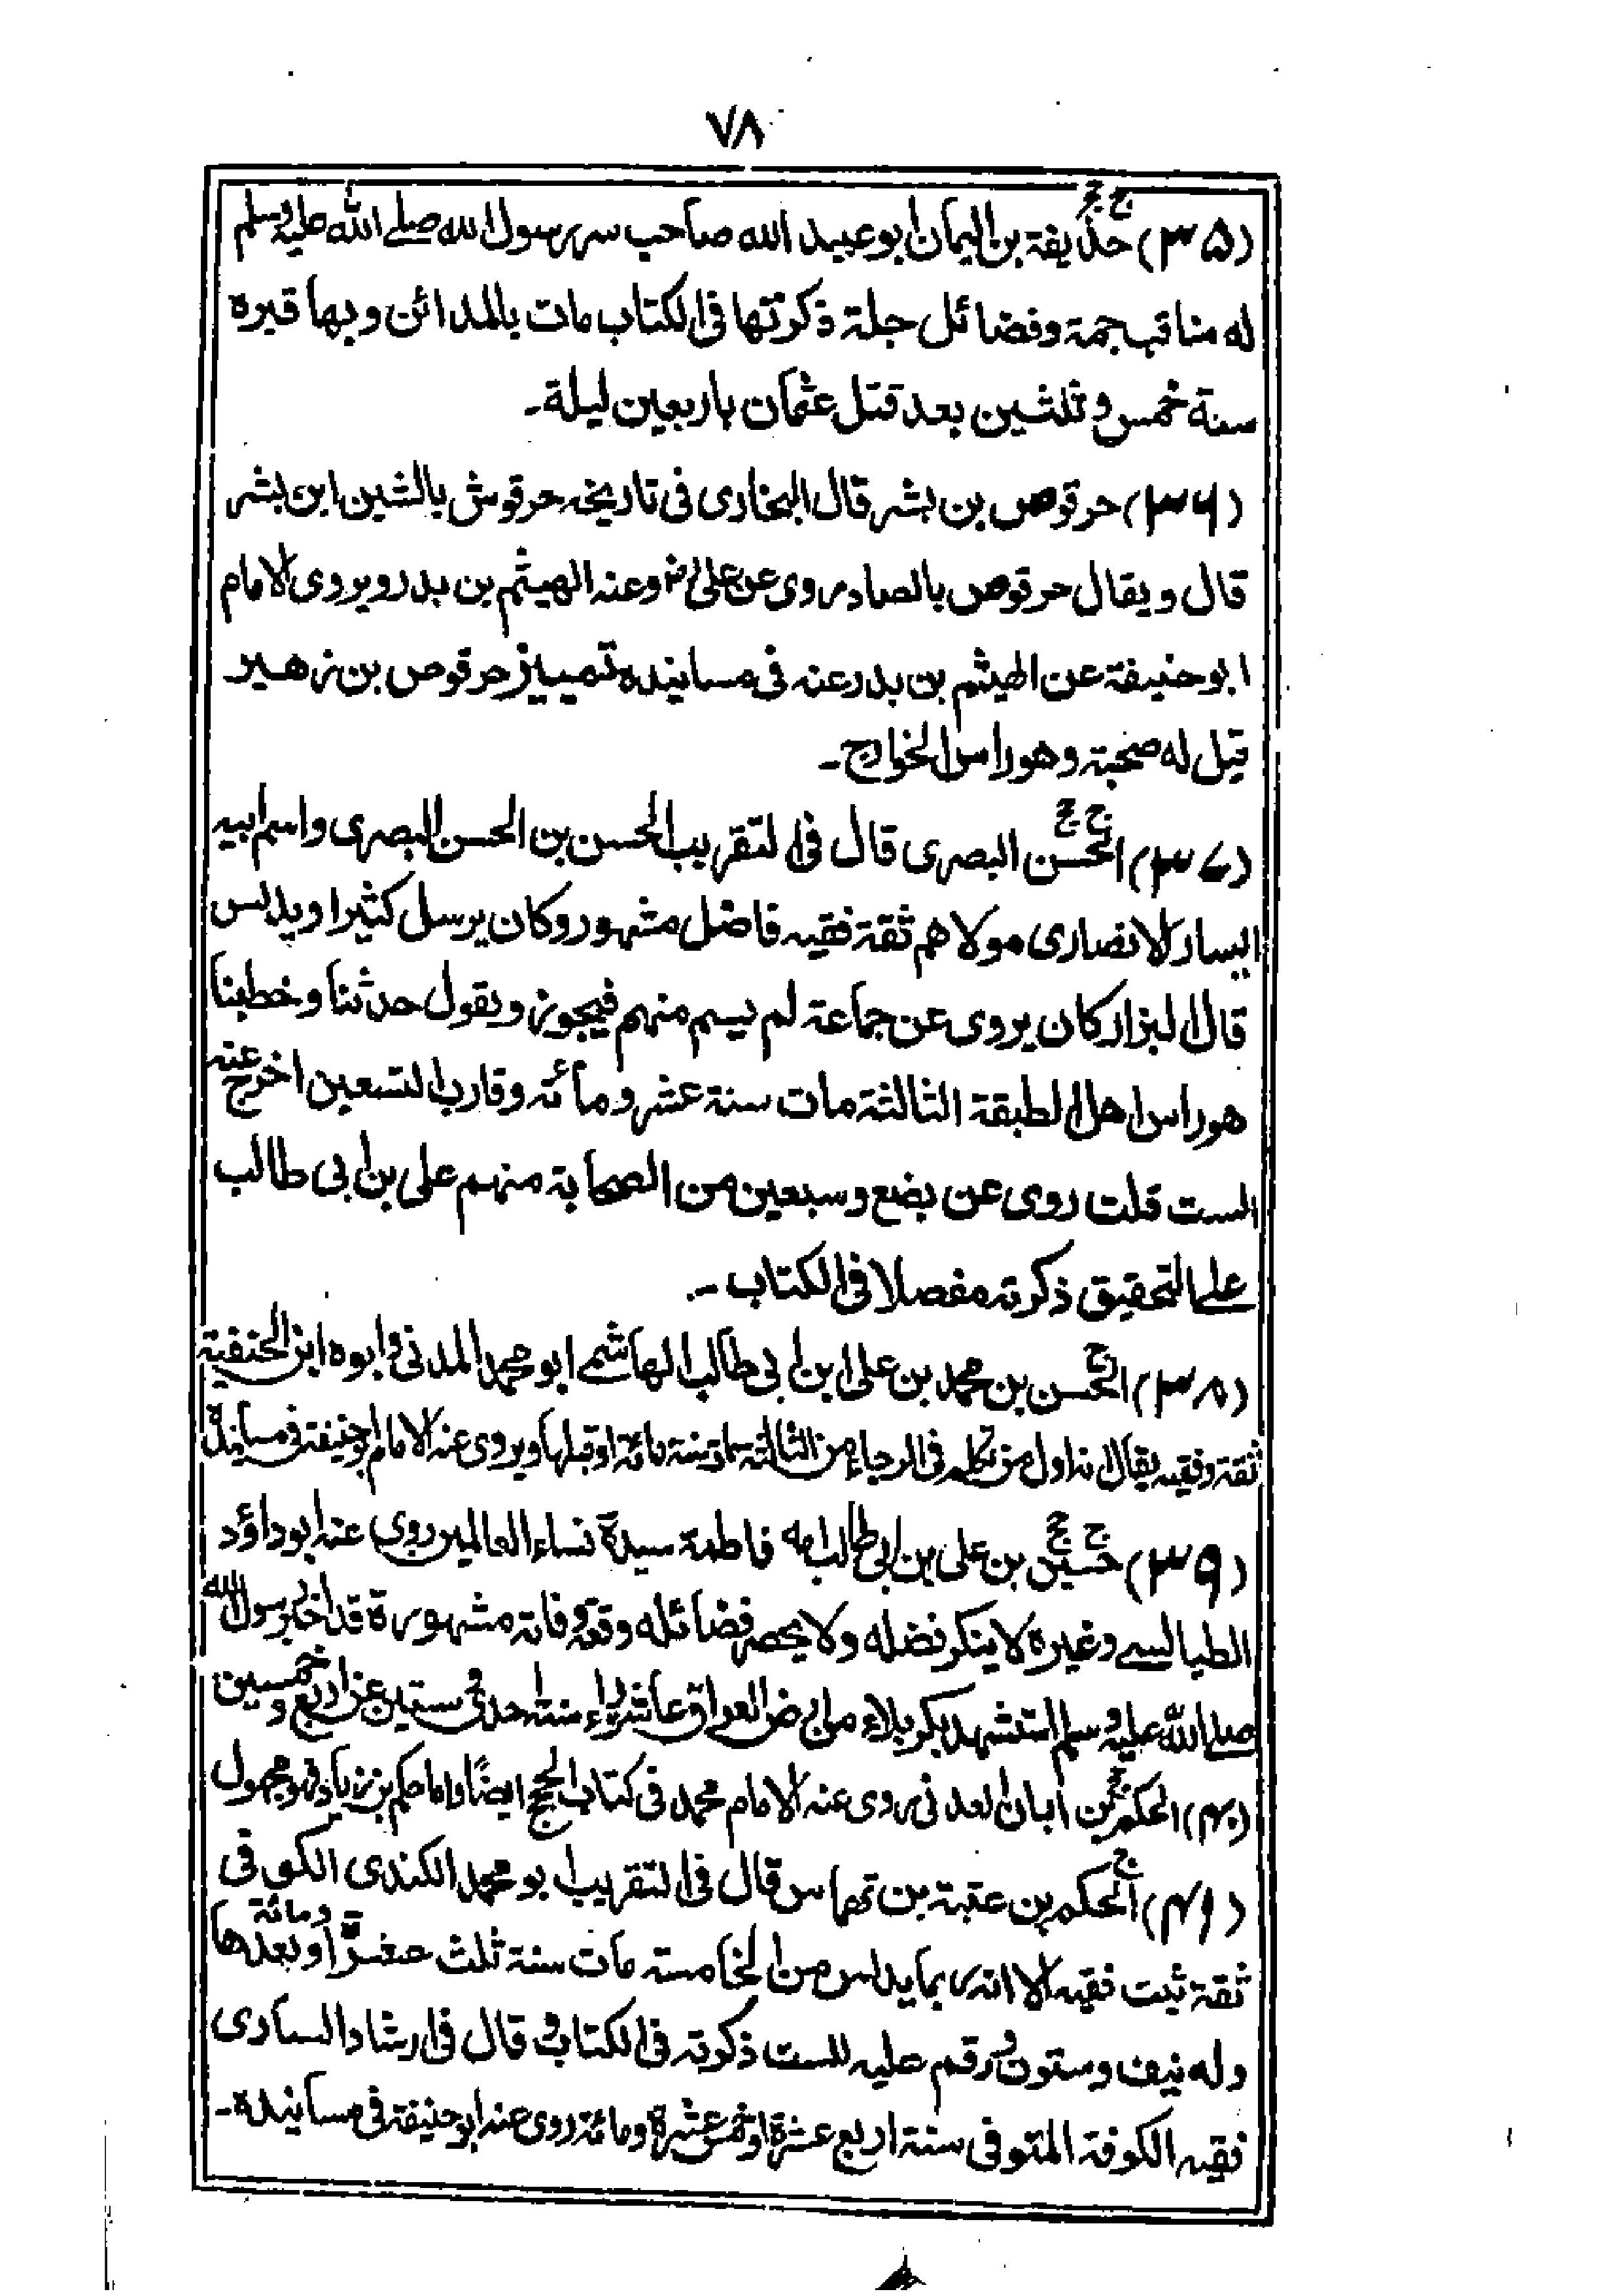 ٧٨
(٣٥) حذيفة بن اليمان ابو عبد الله صاحب سر رسول الله صلے الله عليه وسلم
له مناقب جمة وفضائل جلة ذكرتها فى الكتاب مات بالمدائن وبها قبره
سنة خمس وثلثين بعد قتل عثمان باربعين ليلة۔
(٣٦) حرقوص بن بشر قال البخارى فى تاريخه حرقوش بالشين ابن بشر
قال ويقال حرقوص بالصاد روى عن على رض وعنه الهيثم بن بدر ويروى الامام
ابو حنيفة عن الهيثم بن بدر عنه فى مسانيده تمييز حرقوص بن زهير
قيل له صحبة وهو راس الخوارج۔
(٣٧) الحسن البصرى قال فى التقريب الحسن بن الحسن البصرى واسم ابيه
يسار الانصارى مولاهم ثقة فقيه فاضل مشهور وكان يرسل كثيرا ويدلس
قال البزار كان يروى عن جماعة لم يسم منهم فيجوز ويقول حدثنا وخطبنا
هو راس اهل الطبقة الثالثة مات سنة عشر ومائة وقارب التسعين اخرج عنه
الست قلت روى عن بضع وسبعين من الصحابة منهم على بن ابى طالب
على التحقيق ذكرته مفصلا فى الكتاب۔
(٣٨) الحسن بن محمد بن على ابن ابى طالب الهاشمے ابو محمد المدنى وابوه ابن الحنفية
ثقة وفقيه يقال انه اول من تكلم فى الارجاء من الثالثة مات سنة مائة او قبلها ويروى عنه الامام ابو حنيفة فى مسانيده
(٣٩) حسين بن على بن ابى طالب امه فاطمة سيدة نساء العالمين روى عنه ابو داؤد
الطيالسے وغيره لا ينكر فضله ولا يحصر فضائله وقعة وفاته مشهورة قد اخبر رسول الله
صلے الله عليه وسلم استشهد بكربلاء من ارض العراق عاشوراء سنة احدى وستين عن اربع وخمسين
(٤٠) الحكم بن ابان العدنى روى عنه الامام محمد فى كتاب الحج ايضًا واما حكم بن زياد فهو مجهول
(٤١) الحكم بن عتبة بن نهاس قال فى التقريب ابو محمد الكندى الكوفى
ثقة ثبت فقيه الا انه ربما يدلس من الخامسة مات سنة ثلث عشرة ومائة او بعدها
وله نيف وستون ورقم عليه للست ذكرته فى الكتاب وقال فى ارشاد السارى
فقيه الكوفة المتوفى سنة اربع عشرة او خمس عشرة ومائة روى عنه ابو حنيفة فى مسانيده۔